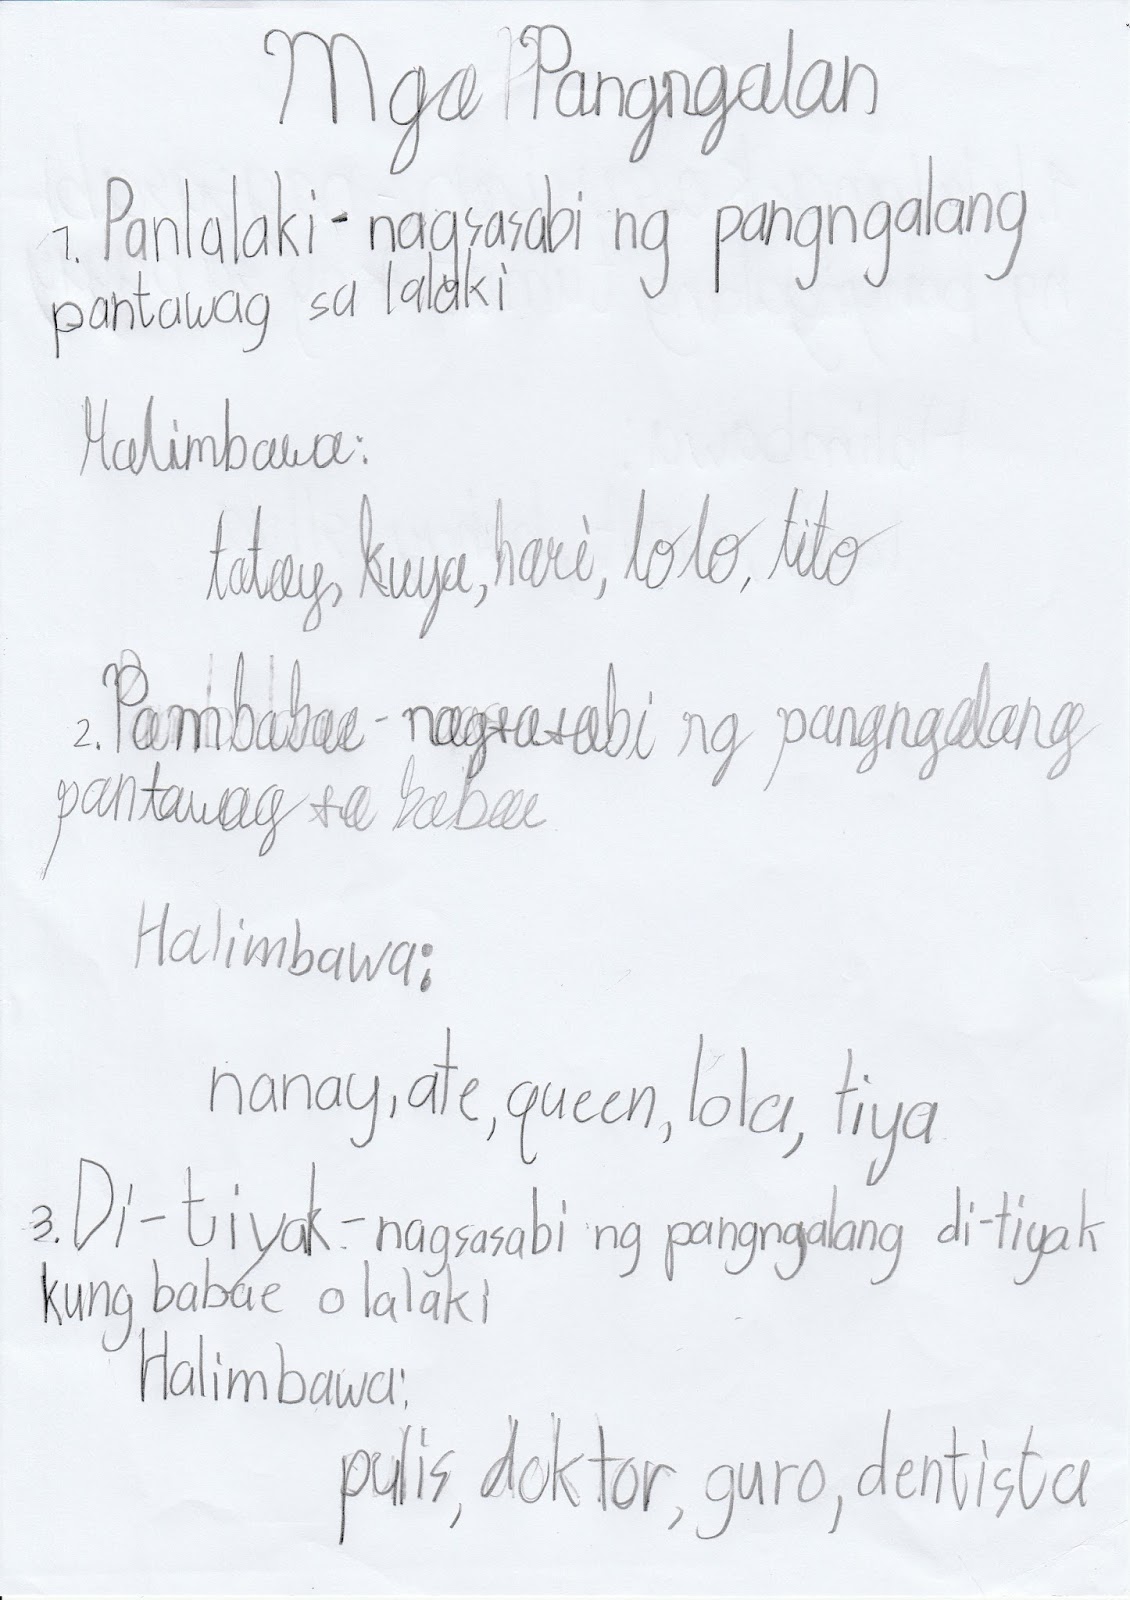 Mga Pangngalan
1. Panlalaki - nagsasabi ng pangngalang
pantawag sa lalaki
Halimbawa:
tatay, kuya, hari, lolo, tito
2. Pambabae - nagsasabi ng pangngalang
pantawag sa babae
Halimbawa:
nanay, ate, queen, lola, tiya
3. Di-tiyak - nagsasabi ng pangngalang di-tiyak
kung babae o lalaki
Halimbawa:
pulis, doktor, guro, dentista